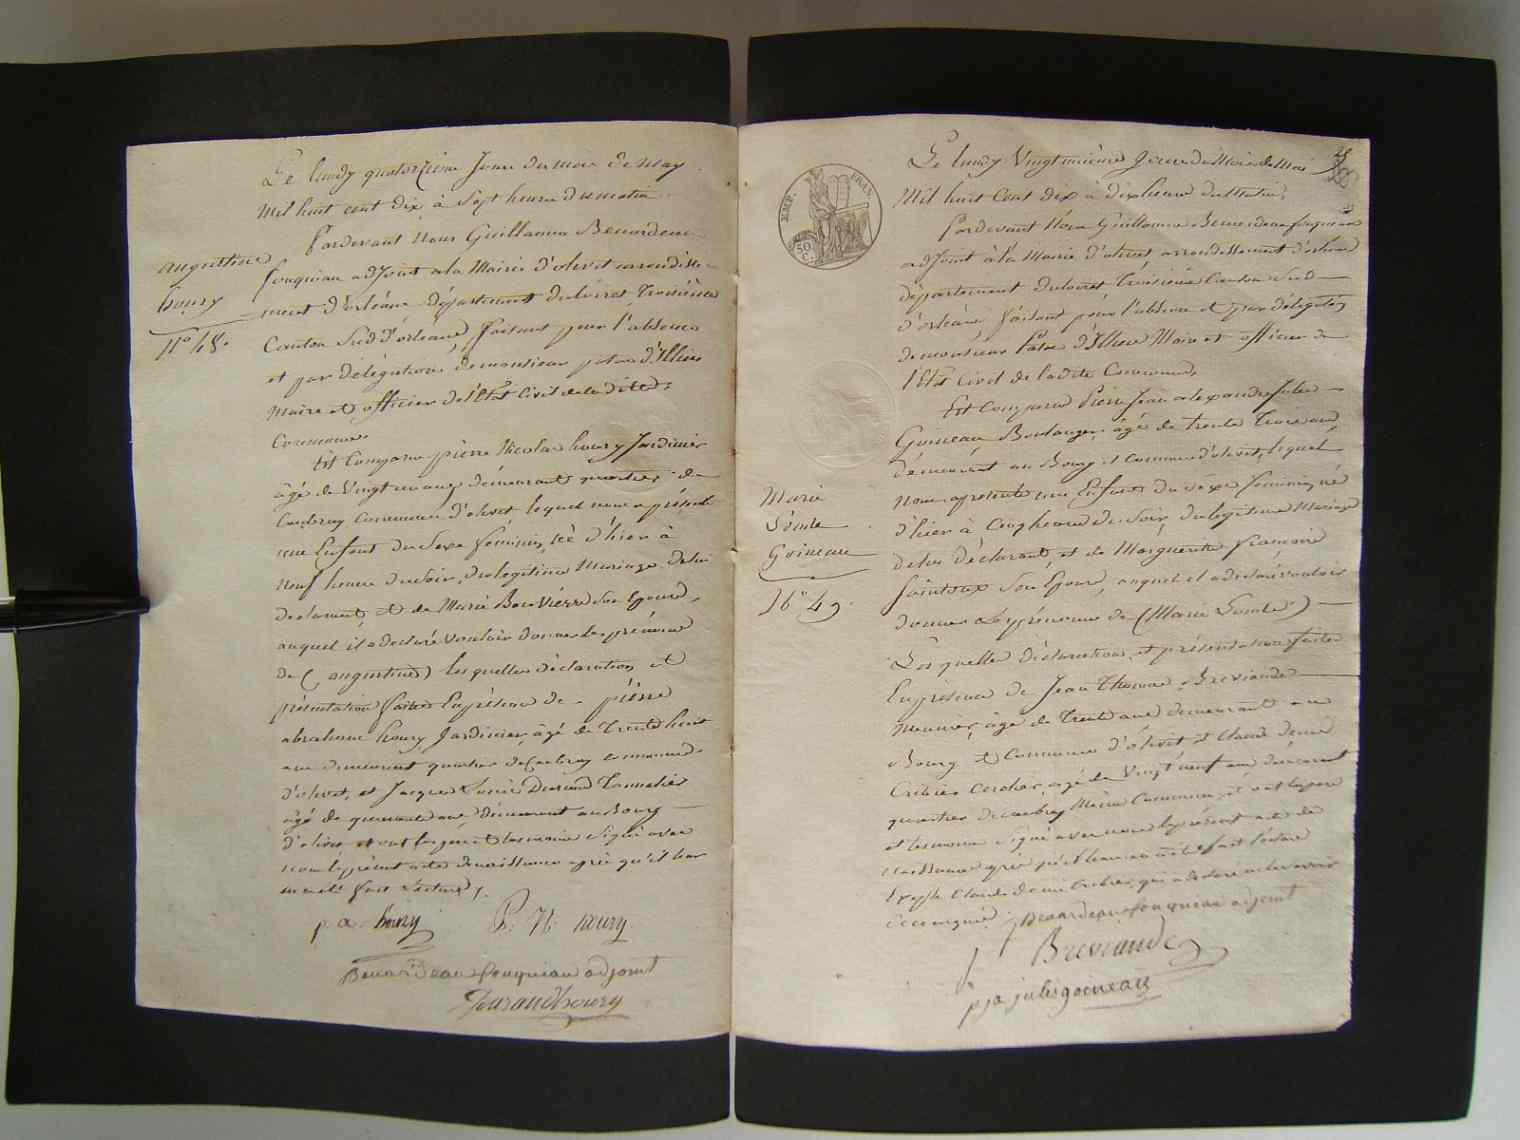 augustine
houry
N° 48.
Le lundy quatorzieme Jour du mois de may
Mil huit cent dix à Sept heure du matin
Pardevant Nous Guillaume Benardeau
fouqueau adjoint a la Mairie d'olivet arrondisse-
ment d'orléans département du loiret Troisième
Canton Sud d'orléans, faisant pour l'absence
et par délégation de monsieur patas d'Illiers
Maire et officier de l'Etat Civil de la ditte
Commune
Est Comparu pierre Nicolas houry Jardinier
âgé de Vingt neuf ans demeurant quartier de
Coubray Commune d'olivet lequel nous a présenté
une Enfant du Sexe féminin, né d'hier à
neuf heure du soir, du legitime Mariage de lui
declarant, et de Marie Son Epouse,
auquel il a declaré vouloir donner le prénom
de (augustine) les quelles déclaration et
présentation faites En présence de pierre
abraham houry Jardinier, âgé de Trente huit
ans demeurant quartier de Coubray commune
d'olivet, et Jacques Durand Tonnelier
âgé de quarante ans, demeurant au Bourg
d'olivet et ont les pere et temoins signé avec
nous le présent acte de naissance après qu'il leur
en a été fait lecture
p a houry P. N. houry
Benardeau fouqueau adjoint
Durand houry
EMP. FRAN.
50 C.
28
Le lundy Vingtunième Jour du Mois de Mai
Mil huit Cent Dix à dix heure du Matin,
Pardevant Nous Guillaume Benardeau fouqueau
adjoint à la Mairie d'olivet arrondissement d'orléans
département du loiret Troisième Canton Sud
d'orléans, faisant pour l'absence et par délégation
de monsieur Patas d'Illiers Maire et officier de
l'Etat Civil de la dite Commune,
Est Comparu Pierre Jean alexandre Jules
Goineau Boulanger, âgé de trente Trois ans,
demeurant au Bourg et Commune d'olivet, lequel
nous a présenté une Enfant du sexe féminin, né
d'hier à Cinq heure du Soir, du legitime Mariage
de lui déclarant, et de Marguerite françoise
Sainteux Son Epouse, auquel il a déclaré vouloir
donner les prénoms de (Marie )
Marie
Goineau
N° 49.
Les quelles déclaration et présentation faites
En présence de Jean Thomas Breviande
Meunier, âgé de Trente ans demeurant au
Bourg et Commune d'olivet et Claude denis
Cribier âgé de Vingt neuf ans demeurant
quartier de Coubray Même Commune, et ont les pere
et temoins signé avec nous le présent acte de
naissance après qu'il leur en a été fait lecture
Excepté Claude denis Cribier, qui a declaré ne le savoir
Benardeau fouqueau adjoint
Breviande
p ja jules goineau